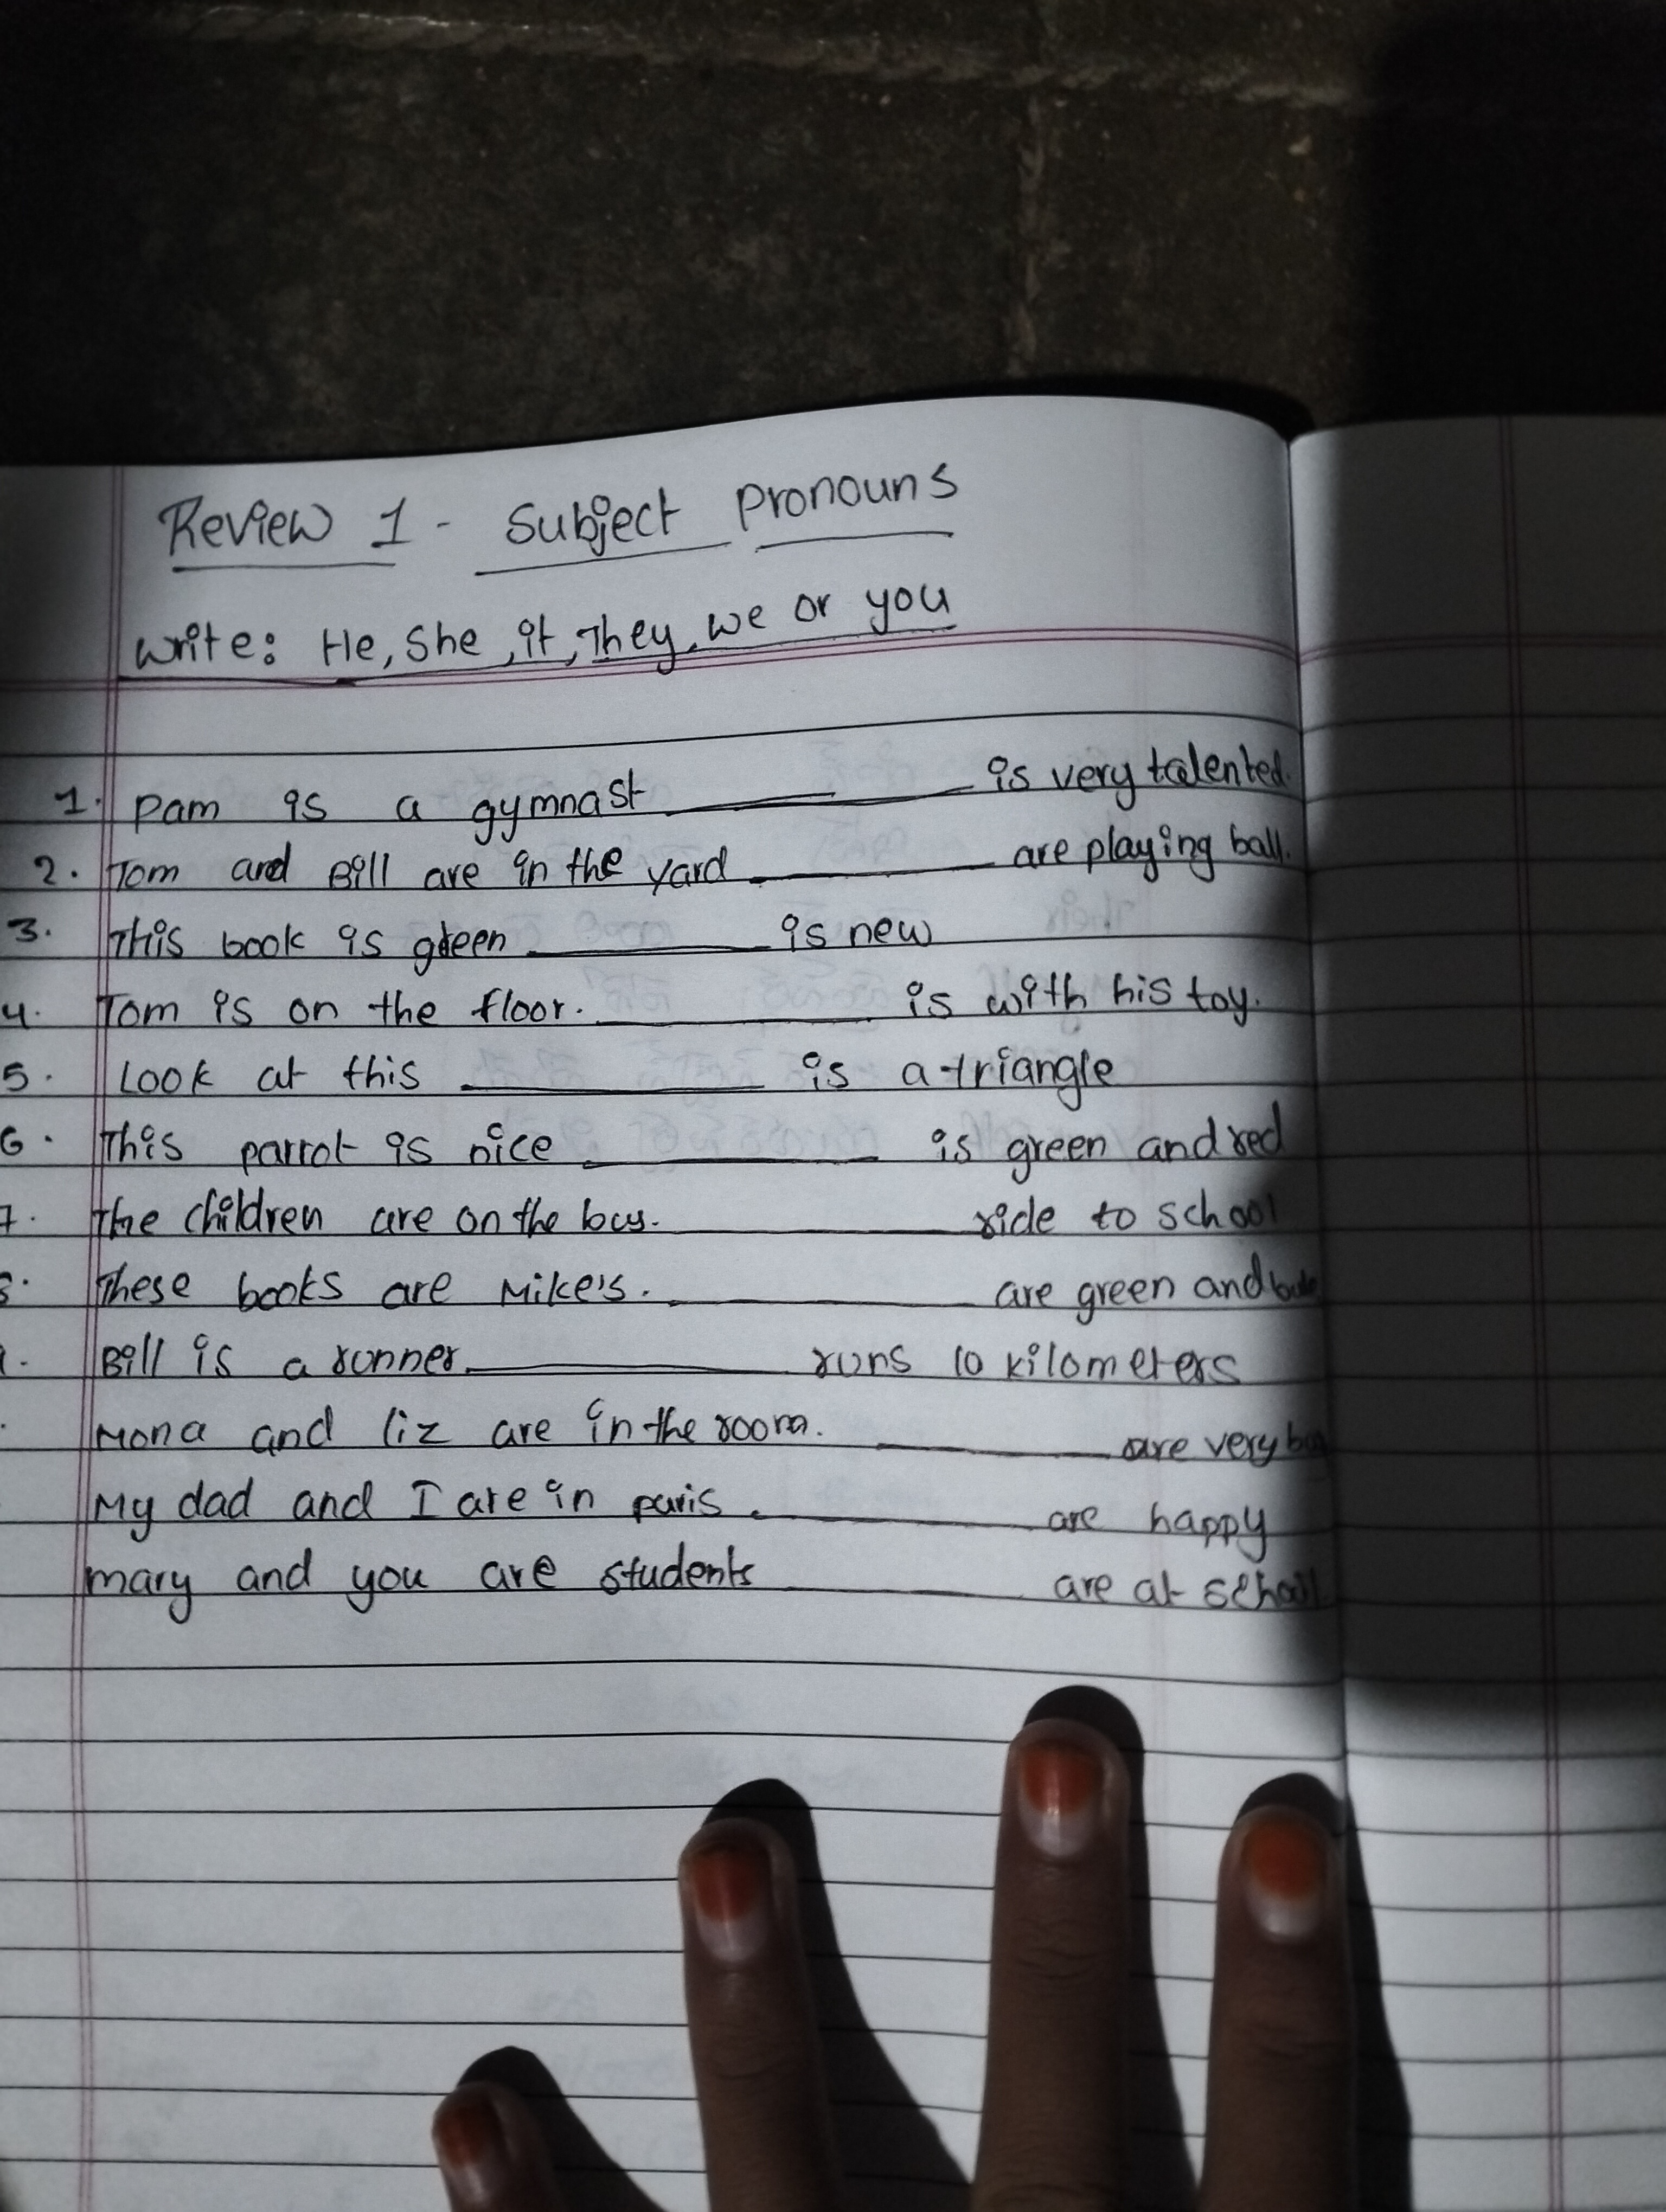 Review 1 - Subject Pronouns
write: He, She, it, They, we or you
1. Pam is a gymnast ______ is very talented.
2. Tom and Bill are in the yard. ______ are playing ball.
3. This book is green ______ is new
4. Tom is on the floor. ______ is with his toy.
5. Look at this ______ is a triangle
6. This parrot is nice ______ is green and red
7. The children are on the bus. ______ ride to school
8. These books are Mike's. ______ are green and
Bill is a runner ______ runs 10 kilometers
Mona and liz are in the room. ______ are very
My dad and I are in paris. ______ are happy
mary and you are students ______ are at